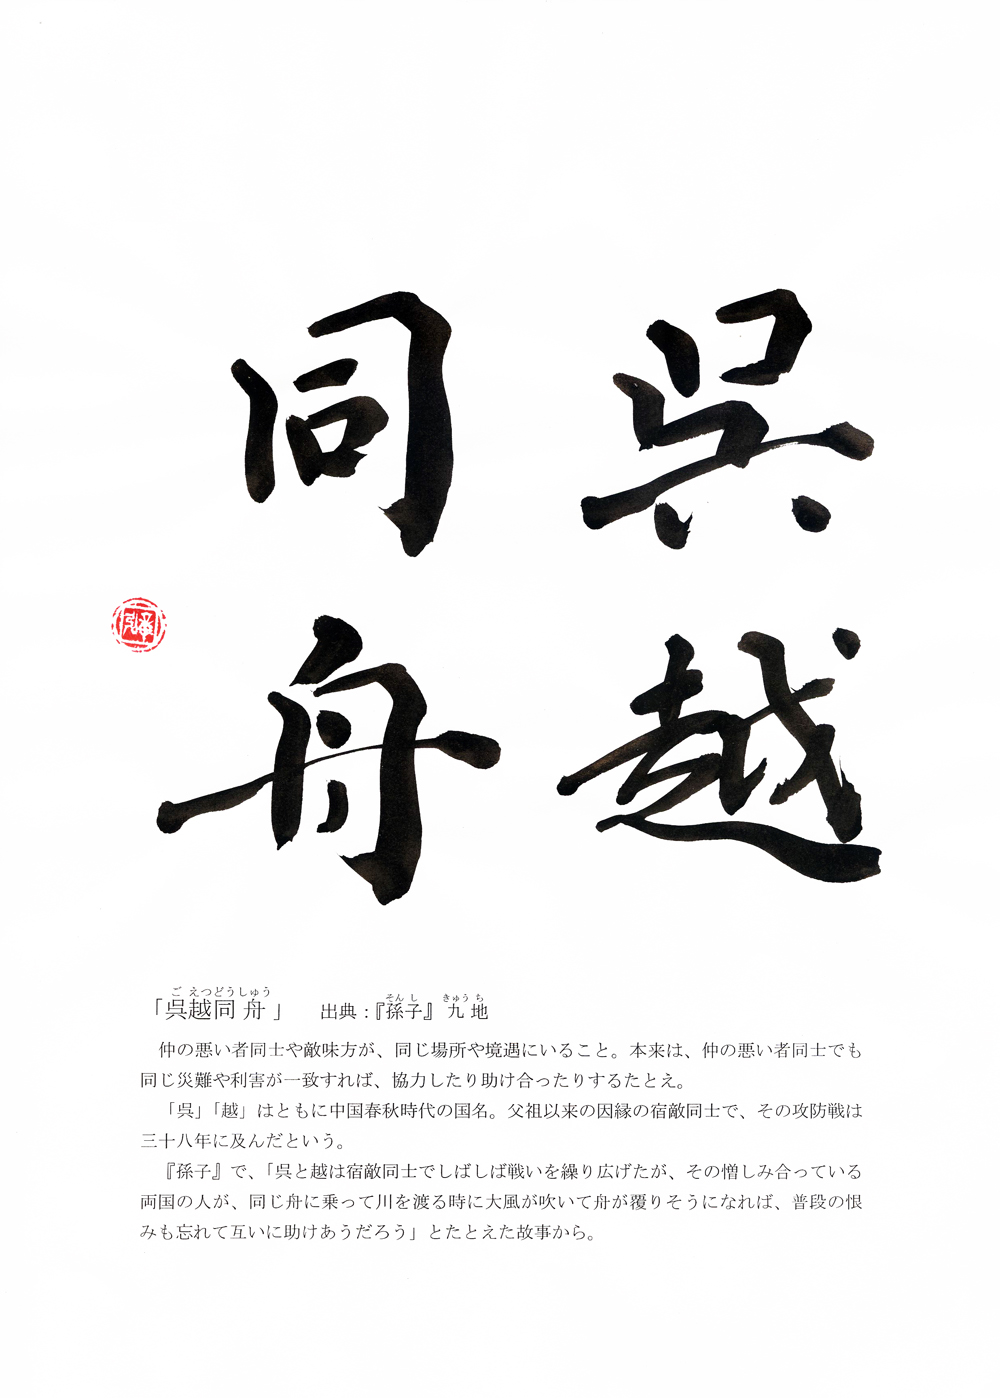 呉越
同舟
「呉越同舟」　出典：『孫子』九地
ごえつどうしゅう　そんし　きゅうち
仲の悪い者同士や敵味方が、同じ場所や境遇にいること。本来は、仲の悪い者同士でも
同じ災難や利害が一致すれば、協力したり助け合ったりするたとえ。
「呉」「越」はともに中国春秋時代の国名。父祖以来の因縁の宿敵同士で、その攻防戦は
三十八年に及んだという。
『孫子』で、「呉と越は宿敵同士でしばしば戦いを繰り広げたが、その憎しみ合っている
両国の人が、同じ舟に乗って川を渡る時に大風が吹いて舟が覆りそうになれば、普段の恨
みも忘れて互いに助けあうだろう」とたとえた故事から。